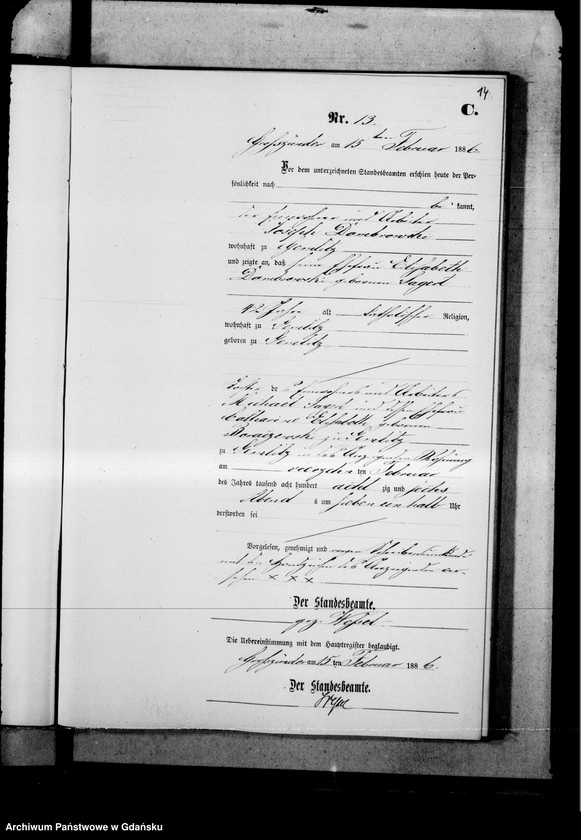 14
C.
Nr. 13.
Großzünder am 15 ten Februar 1886.
Vor dem unterzeichneten Standesbeamten erschien heute der Per-
sönlichkeit nach
be kannt,
der und Arbeiter
Joseph Dombrowski
wohnhaft zu Gemlitz
und zeigte an, daß seine Ehefrau Elisabeth
Dombrowski geborene
42 Jahre alt katholischer Religion,
wohnhaft zu Gemlitz
geboren zu Gemlitz
Tochter des und Arbeiters
Michael und dessen Ehefrau
Catharine Elisabeth geborenen
zu Gemlitz
zu Gemlitz in des Anzeigenden Wohnung
am vierzehn ten Februar
des Jahres tausend acht hundert acht zig und sechs
Abend s um sieben ein halb Uhr
verstorben sei
Vorgelesen, genehmigt und wegen
mit den Handzeichen des Anzeigenden ver-
sehen x x x
Der Standesbeamte.
gez. Wessel
Die Uebereinstimmung mit dem Hauptregister beglaubigt.
Großzünder am 15 ten Februar 1886.
Der Standesbeamte.
Wessel
Archiwum Państwowe w Gdańsku